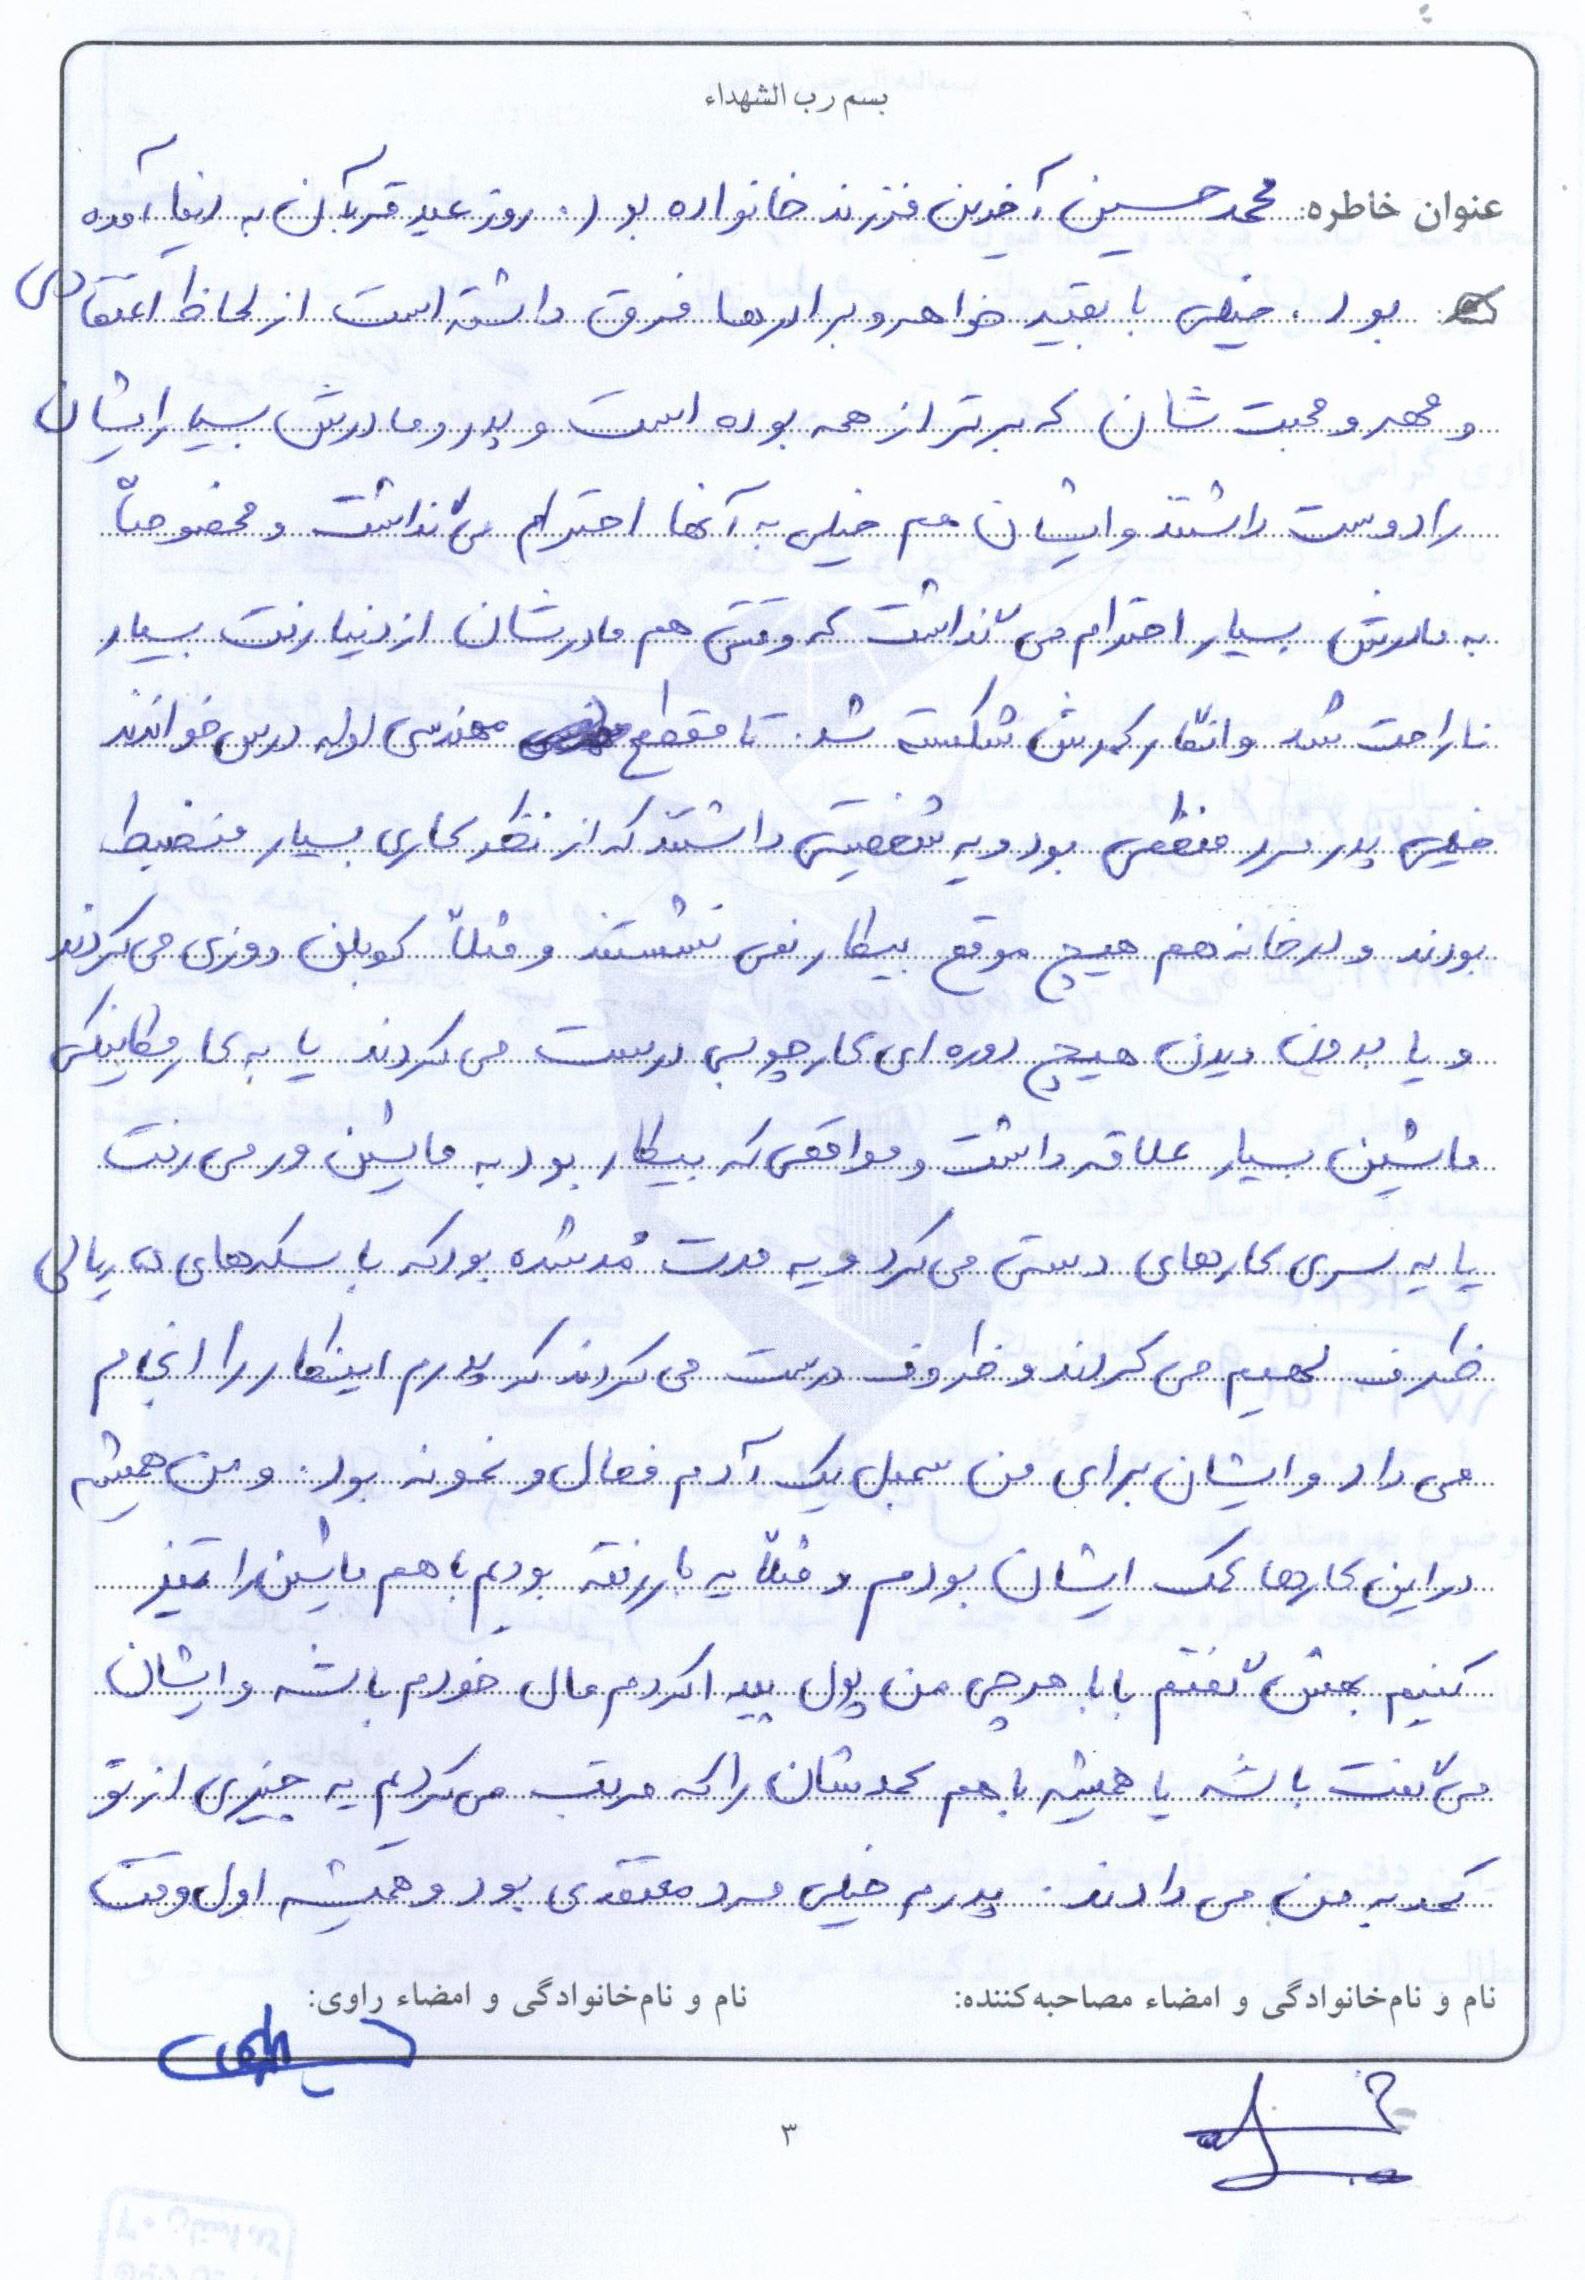 بسم رب الشهداء
عنوان خاطره: محمدحسین آخرین فرزند خانواده بود. روز عید قربان به دنیا آمده
بود، خیلی با بقیه خواهر و برادرها فرق داشته است از لحاظ اعتقادی
و مهر و محبت شان که برتر از همه بوده است و پدر و مادرش بسیار ایشان
را دوست داشتند و ایشان هم خیلی به آنها احترام می گذاشت و مخصوصاً
به مادرش بسیار احترام می گذاشت که وقتی هم مادرشان از دنیا رفت بسیار
ناراحت شد و انگار کمرش شکسته شد. تا مقطع مهندسی لوله درس خواندند
خیلی پدر مرد منظمی بود و یه شخصیتی داشتند که از نظر کاری بسیار منضبط
بودند و در خانه هم هیچ موقع بیکار نمی نشستند و مثلاً کوبلن دوزی می کردند
و یا بدون دیدن هیچ دوره ای کار چوبی درست می کردند یا به کار مکانیکی
ماشین بسیار علاقه داشت و مواقعی که بیکار بود به ماشین ور می رفت
یا یه سری کارهای دستی می کرد و یه مدت مُد شده بود که با سکه های ۵ ریالی
ظرف لحیم می کردند و ظروف درست می کردند که پدرم اینکار را انجام
می داد و ایشان برای من سمبل یک آدم فعال و نمونه بود. و من همیشه
در این کارها کمک ایشان بودم و مثلاً یه بار رفته بودیم با هم ماشین را تمیز
کنیم بهش گفتم بابا هرچی من پول پیدا کردم مال خودم باشه و ایشان
می گفت باشه یا همیشه با هم کمدشان را که مرتب می کردیم یه چیزی از تو
کمد به من می دادند. پدرم خیلی مرد معتقدی بود و همیشه اول وقت
نام و نام‌خانوادگی و امضاء مصاحبه‌کننده:
نام و نام‌خانوادگی و امضاء راوی:
۳